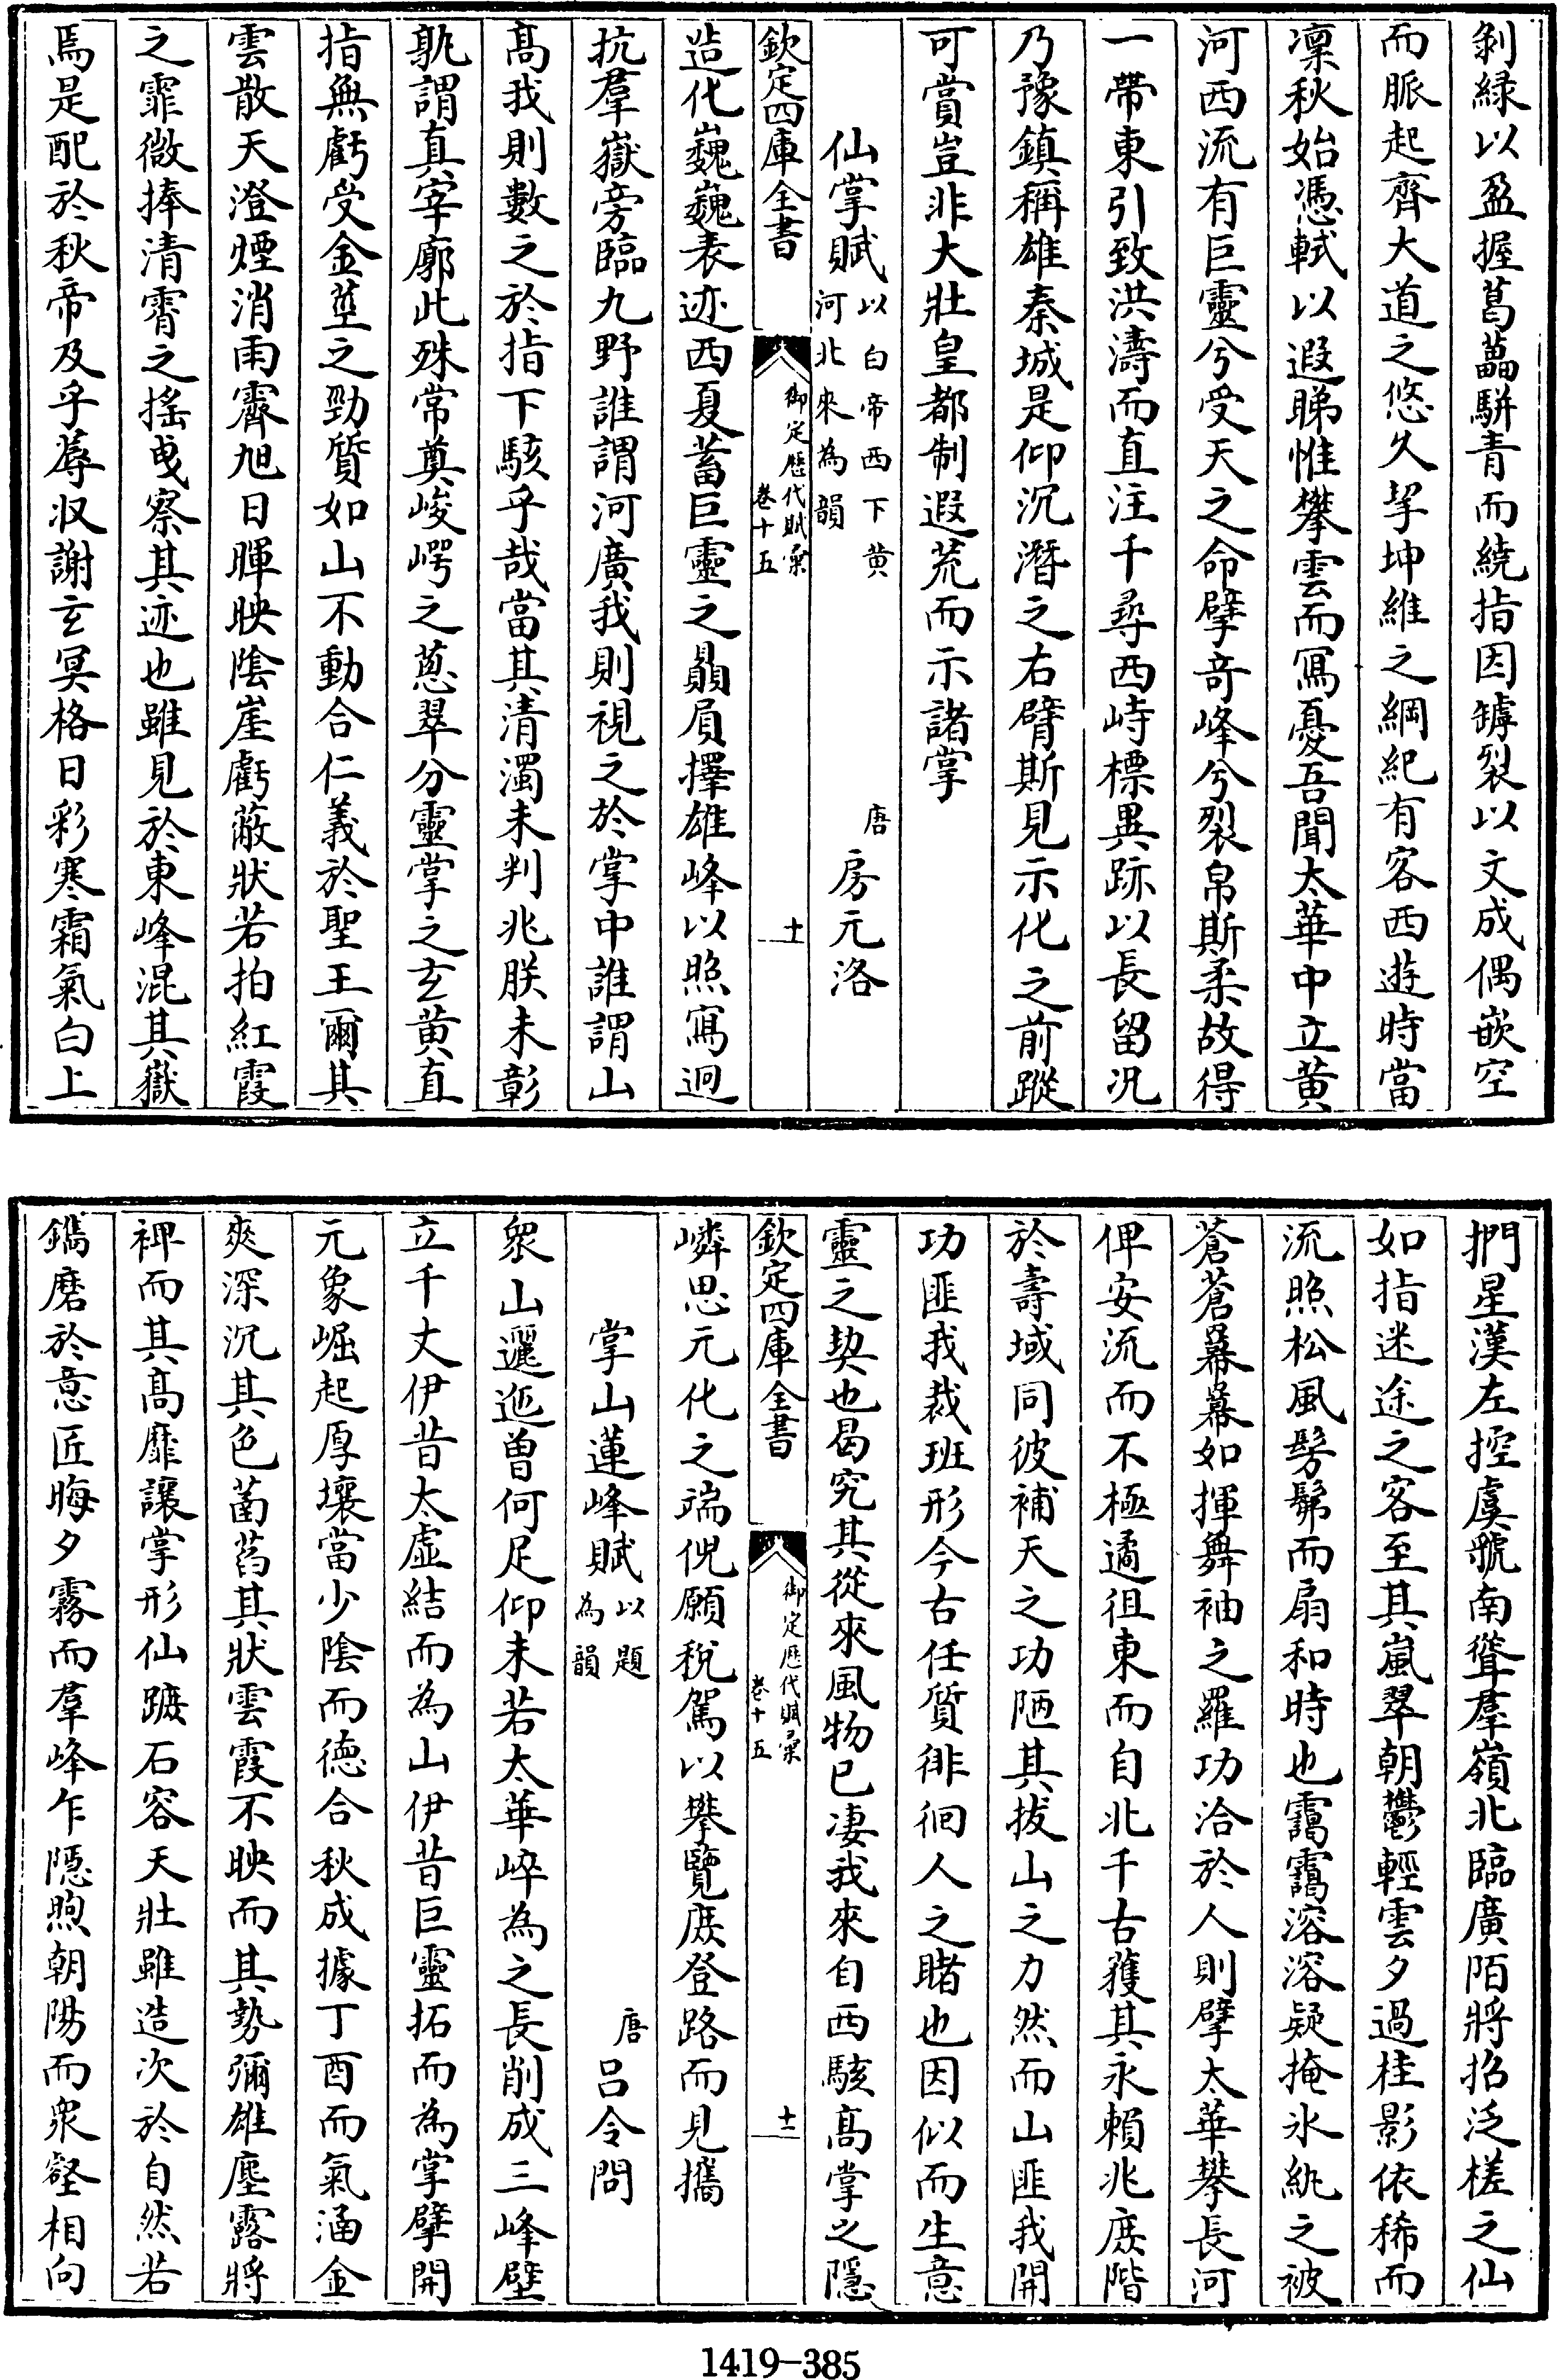 剝緑以盈握葛藟駢青而繞指因罅裂以文成偶嵌空
而脈起齊大道之悠久挈坤維之綱紀有客西遊時當
凜秋始憑軾以遐睇惟攀雲而寫憂吾聞太華中立黄
河西流有巨靈兮受天之命擘竒峰兮裂帛斯柔故得
一帶東引致洪濤而直注千尋西峙標異跡以長留况
乃豫鎮稱雄秦城是仰沉潛之右臂斯見示化之前蹤
可賞豈非大壯皇都制遐荒而示諸掌
仙掌賦以白帝西下黄河北來為韻 唐房元洛
欽定四庫全書 御定歷代賦彚 卷十五 十一
造化巍巍表迹西夏蓄巨靈之贔屓擇雄峰以照寫迥
抗羣嶽旁臨九野誰謂河廣我則視之於掌中誰謂山
髙我則數之於指下駭乎哉當其清濁未判兆朕未彰
孰謂真宰廓此殊常奠峻崿之蔥翠分靈掌之玄黄直
指無虧受金莖之勁質如山不動合仁義於聖王爾其
雲散天澄煙消雨霽旭日暉映陰崖虧蔽狀若拍紅霞
之霏微捧清霄之摇曳察其迹也雖見於東峰混其嶽
焉是配於秋帝及乎蓐收謝玄冥格日彩寒霜氣白上
捫星漢左控虞虢南聳羣嶺北臨廣陌將招泛槎之仙
如指迷途之客至其嵐翠朝鬱輕雲夕過桂影依稀而
流照松風髣髴而扇和時也靄靄溶溶疑掩氷紈之被
蒼蒼冪冪如揮舞袖之羅功洽於人則擘太華攀長河
俾安流而不極遹徂東而自北千古蒦其永賴兆庶階
於壽域同彼補天之功陋其拔山之力然而山匪我開
功匪我裁班形今古任質徘徊人之睹也因似而生意
靈之契也曷究其從來風物已凄我來自西駭髙掌之隱
欽定四庫全書 御定歷代賦彚 卷十五 十二
嶙思元化之端倪願稅駕以攀覽庶登路而見攜
掌山蓮峰賦以題為韻 唐吕令問
衆山邐迤曽何足仰未若太華崪為之長削成三峰壁
立千丈伊昔太虛結而為山伊昔巨靈拓而為掌擘開
元象崛起厚壤當少陰而德合秋成據丁酉而氣涵金
爽深沉其色菡萏其狀雲霞不映而其勢彌雄塵露將
裨而其髙靡讓掌形仙蹠石容天壯雖造次於自然若
鐫磨於意匠晦夕霧而羣峰乍隱煦朝陽而衆壑相向
1419-385